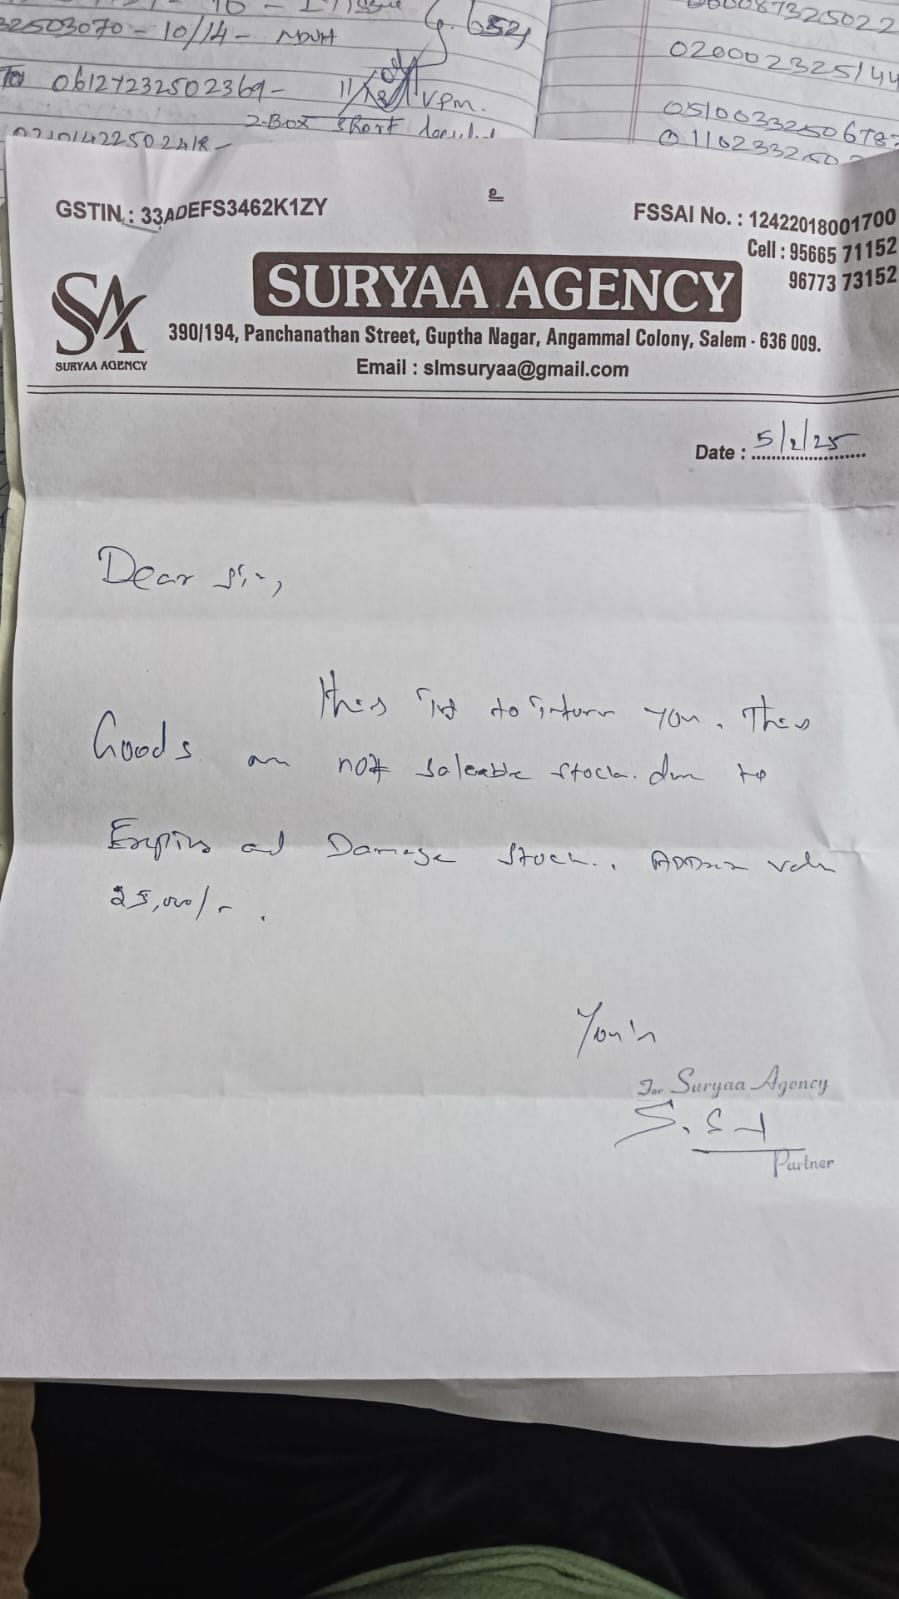 32503070 - 10/14 -
6524
To 061272325023 69-
VPM.
2-Box Short
02101422502418 -
02000 2325144
GSTIN : 33ADEFS3462K1ZY
உ
FSSAI No. : 12422018001700
Cell : 95665 71152
96773 73152
SURYAA AGENCY
SA
SURYAA AGENCY
390/194, Panchanathan Street, Guptha Nagar, Angammal Colony, Salem - 636 009.
Email : slmsuryaa@gmail.com
Date : 5/2/25
Dear Sir,
This is to inform you. This
Goods are not Saleable stock. due to
Expiry and Damage Stock.
25,000/-.
Your's
For Suryaa Agency
Partner